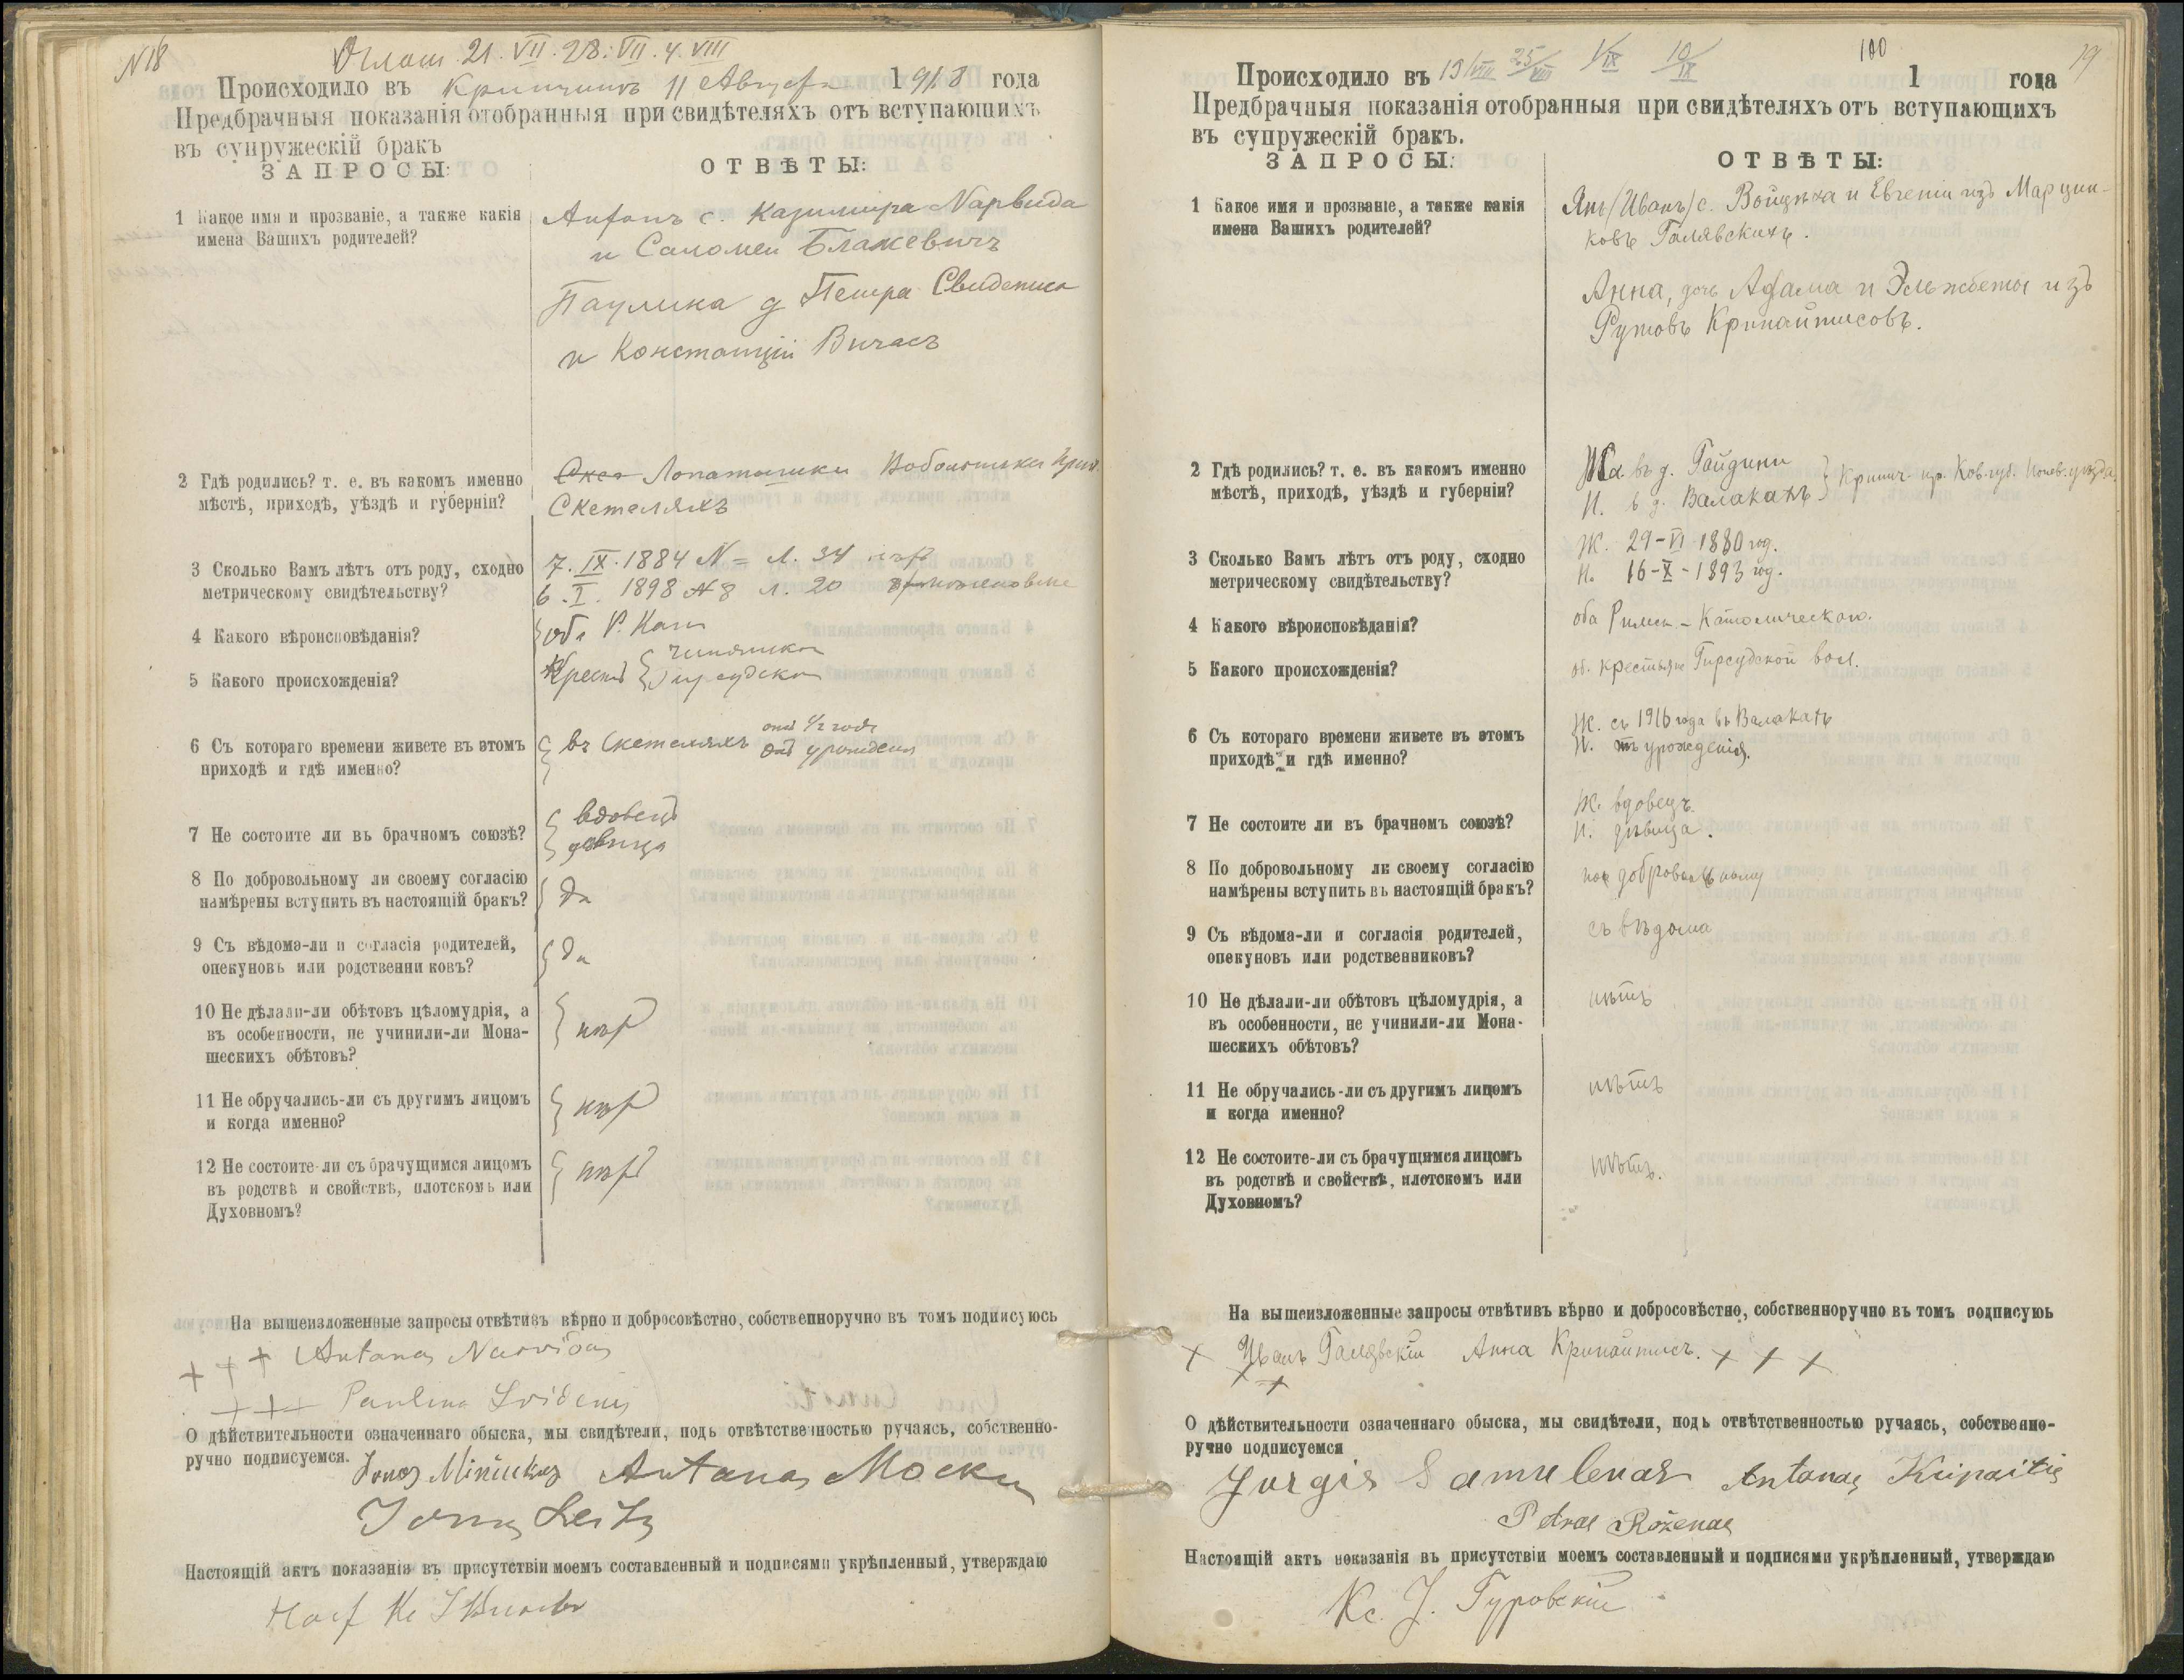 N18
Оглаш. 21. VII. 28. VII. 4. VIII
Происходило въ Кринчинъ 11 Августа 1918 года
Предбрачныя показанія отобранныя при свидѣтеляхъ отъ вступающихъ
въ супружескій бракъ
ЗАПРОСЫ: ОТВѢТЫ:
1 Какое имя и прозваніе, а также какія
имена Вашихъ родителей?
Антонъ с. Казимира Нарвида
и Саломеи Блажевичъ
Паулина д Петра Свидениса
и Констанціи Вичасъ
2 Гдѣ родились? т. е. въ какомъ именно
мѣстѣ, приходѣ, уѣздѣ и губерніи?
Скетеляхъ
3 Сколько Вамъ лѣтъ отъ роду, сходно
метрическому свидѣтельству?
7. IX. 1884 N = л. 34
6. I. 1898 N 8 л. 20
4 Какого вѣроисповѣданія?
оба Р. Кат
5 Какого происхожденія?
Крест
6 Съ котораго времени живете въ этомъ
приходѣ и гдѣ именно?
въ Скетеляхъ отъ 1/2 года
отъ урожден
7 Не состоите ли въ брачномъ союзѣ?
вдовецъ
дѣвица
8 По добровольному ли своему согласію
намѣрены вступить въ настоящій бракъ?
да
9 Съ вѣдома-ли и согласія родителей,
опекуновъ или родственни ковъ?
да
10 Не дѣлали-ли обѣтовъ цѣломудрія, а
въ особенности, не учинили-ли Мона-
шескихъ обѣтовъ?
нѣт
11 Не обручались-ли съ другимъ лицомъ
и когда именно?
нѣт
12 Не состоите-ли съ брачущимся лицомъ
въ родствѣ и свойствѣ, плотскомъ или
Духовномъ?
нѣт
На вышеизложенные запросы отвѣтивъ вѣрно и добросовѣстно, собственноручно въ томъ подписуюсь
+ + + Antanas Narvidas
+ + + Paulina Svidenis
О дѣйствительности означеннаго обыска, мы свидѣтели, подъ отвѣтственностью ручаясь, собственно-
ручно подписуемся.
Antanas
Jonas
Настоящій актъ показанія въ присутствіи моемъ составленный и подписями укрѣпленный, утверждаю
100
19
Происходило въ 19/VIII 25/VIII 1/IX 10/IX 1 года
Предбрачныя показанія отобранныя при свидѣтеляхъ отъ вступающихъ
въ супружескій бракъ.
ЗАПРОСЫ: ОТВѢТЫ:
1 Какое имя и прозваніе, а также какія
имена Вашихъ родителей?
Янъ/Иванъ/с. Войцѣха и Евгеніи изъ Марцин-
ковъ Галявскихъ.
Анна, дочь Адама и Эльжбеты изъ
Рутовъ Крипайтисовъ.
2 Гдѣ родились? т. е. въ какомъ именно
мѣстѣ, приходѣ, уѣздѣ и губерніи?
Ж. въ д. Гайдзини
Н. в д. Валакахъ } Кринч. пр. Ков. губ. Понев. уѣзда.
3 Сколько Вамъ лѣтъ отъ роду, сходно
метрическому свидѣтельству?
Ж. 29-VI 1880 год.
Н. 16-X-1893 год.
4 Какого вѣроисповѣданія?
оба Римск.-Католическаго.
5 Какого происхожденія?
об. крестьяне Гирсудской вол.
6 Съ котораго времени живете въ этомъ
приходѣ и гдѣ именно?
Ж. съ 1916 года въ Валакахъ
Н. отъ урожденія.
7 Не состоите ли въ брачномъ союзѣ?
Ж. вдовецъ.
Н. дѣвица.
8 По добровольному ли своему согласію
намѣрены вступить въ настоящій бракъ?
по добровольному
9 Съ вѣдома-ли и согласія родителей,
опекуновъ или родственниковъ?
съ вѣдома
10 Не дѣлали-ли обѣтовъ цѣломудрія, а
въ особенности, не учинили-ли Мона-
шескихъ обѣтовъ?
нѣтъ
11 Не обручались-ли съ другимъ лицомъ
и когда именно?
нѣтъ
12 Не состоите-ли съ брачущимся лицомъ
въ родствѣ и свойствѣ, плотскомъ или
Духовномъ?
нѣтъ.
На вышеизложенные запросы отвѣтивъ вѣрно и добросовѣстно, собственноручно въ томъ подписуюь
+ Иванъ Галявскій Анна Крипайтисъ. + + +
+ +
О дѣйствительности означеннаго обыска, мы свидѣтели, подъ отвѣтственностью ручаясь, собственно-
ручно подписуемся
Jurgis Samulenas Antanas Kripaitis
Petras Roženas
Настоящій актъ показанія въ присутствіи моемъ составленный и подписями укрѣпленный, утверждаю
Кс. J. Гуровскій